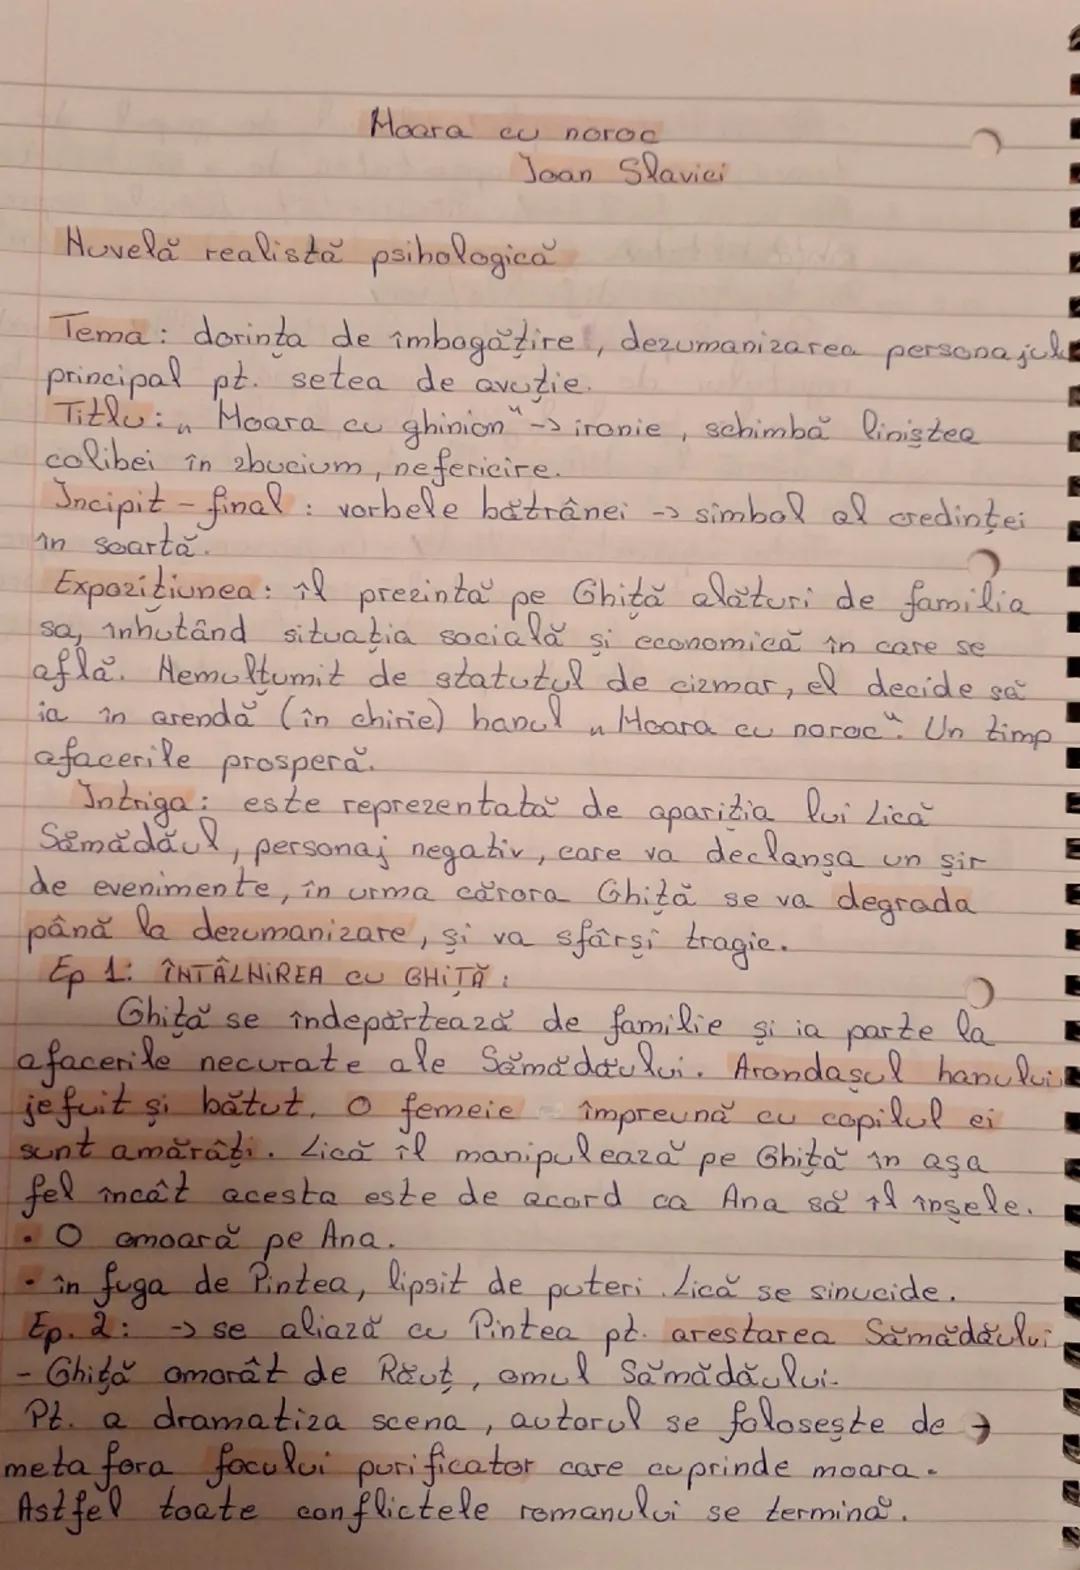 Moara cu noroc
Ioan Slavici
Nuvelă realistă psihologică
Tema: dorința de îmbogățire, dezumanizarea personajului
principal pt. setea de avuție.
Titlu: „Moara cu ghinion" -> ironie, schimbă liniștea
colibei în zbucium, nefericire.
Incipit - final: vorbele bătrânei -> simbol al credinței
în soartă.
Expozițiunea: îl prezintă pe Ghiță alături de familia
sa, situația socială și economică în care se
află. Nemulțumit de statutul de cizmar, el decide să
ia în arendă (în chirie) hanul „Moara cu noroc". Un timp
afacerile prosperă.
Intriga: este reprezentată de apariția lui Lică
Sămădăul, personaj negativ, care va declanșa un șir
de evenimente, în urma cărora Ghiță se va degrada
până la dezumanizare, și va sfârși tragic.
Ep 1: ÎNTÂLNIREA cu GHIȚĂ:
Ghiță se îndepărtează de familie și ia parte la
afacerile necurate ale Sămădăului. Arondașul hanului
jefuit și bătut. O femeie împreună cu copilul ei
sunt amărâți. Lică îl manipulează pe Ghiță în așa
fel încât acesta este de acord ca Ana să îl înșele.
• O omoară pe Ana.
• în fuga de Pintea, lipsit de puteri Lică se sinucide.
Ep. 2: -> se aliază cu Pintea pt. arestarea Sămădăului
- Ghiță omorât de Răuț, omul Sămădăului.
Pt. a dramatiza scena, autorul se folosește de ->
metafora focului purificator care cuprinde moara.
Astfel toate conflictele romanului se termină.